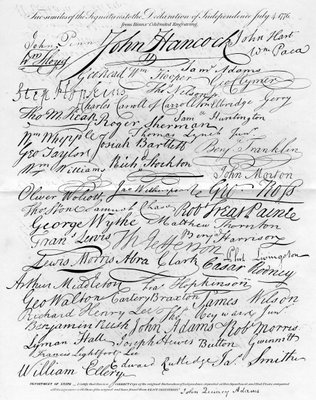 Fac-similes of the Signatures to the Declaration of Independence July 4. 1776.
from Binns' Celebrated Engraving.
John Penn John Hancock John Hart
Wm Floyd Wm Paca
Geo Read Wm Hooper Saml Adams
Step. Hopkins Thos Nelson jr. Geo Clymer
Charles Carroll of Carrollton Elbridge Gerry
Tho M:Kean Roger Sherman Saml Huntington
Wm Whipple Thomas Lynch Junr
Geo Taylor Josiah Bartlett Benj. Franklin
Wm Williams Richd Stockton
John Morton
Oliver Wolcott Jno Witherspoon Geo. Ross
Thos Stone Samuel Chase Robt Treat Paine
George Wythe Matthew Thornton
Frans Lewis Th Jefferson Benj. Harrison
Lewis Morris Abra Clark Caesar Rodney Phil. Livingston
Arthur Middleton Fras Hopkinson
Geo Walton Carter Braxton James Wilson
Richard Henry Lee Thos Heyward Junr
Benjamin Rush John Adams Robt Morris
Lyman Hall Joseph Hewes Button Gwinnett
Francis Lightfoot Lee
William Ellery Edward Rutledge Jas. Smith
DEPARTMENT OF STATE
John Quincy Adams